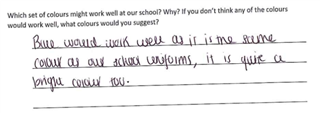 Which set of colours might work well at our school? Why? If you don't think any of the colours
would work well, what colours would you suggest?
Blue would work well as it is the same
colour as our school uniforms, it is quite a
bright colour too.